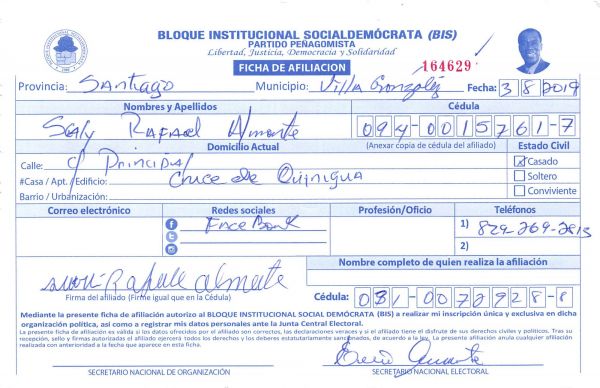 BLOQUE INSTITUCIONAL SOCIALDEMÓCRATA (BIS)
PARTIDO PEÑAGOMISTA
Libertad, Justicia, Democracia y Solidaridad
FICHA DE AFILIACION
164629
Provincia: Santiago Municipio: Villa González Fecha: 3/8/2019
Nombres y Apellidos Cédula
Rafael Almonte 094-0015761-7
Domicilio Actual (Anexar copia de cédula del afiliado) Estado Civil
Calle: C/ Principal Casado
#Casa / Apt. / Edificio: Cruce de Quinigua Soltero
Barrio / Urbanización: Conviviente
Correo electrónico Redes sociales Profesión/Oficio Teléfonos
FaceBook 1) 829-269-2813
2)
Nombre completo de quien realiza la afiliación
Rafael almonte
Firma del afiliado (Firme igual que en la Cédula) Cédula: 031-0072928-8
Mediante la presente ficha de afiliación autorizo al BLOQUE INSTITUCIONAL SOCIAL DEMÓCRATA (BIS) a realizar mi inscripción única y exclusiva en dicha
organización política, así como a registrar mis datos personales ante la Junta Central Electoral.
La presente ficha de afiliación es válida si los datos ofrecidos por el afiliado son correctos, las declaraciones veraces y si el afiliado tiene el disfrute de sus derechos civiles y políticos. Tras su
recepción, sello y firmas autorizadas el afiliado ejercerá todos los derechos y los deberes estatutariamente sancionados, de acuerdo a la ley. La presente afiliación anula cualquier afiliación
realizada con anterioridad a la fecha que aparece en esta ficha.
SECRETARIO NACIONAL DE ORGANIZACIÓN SECRETARIO NACIONAL ELECTORAL